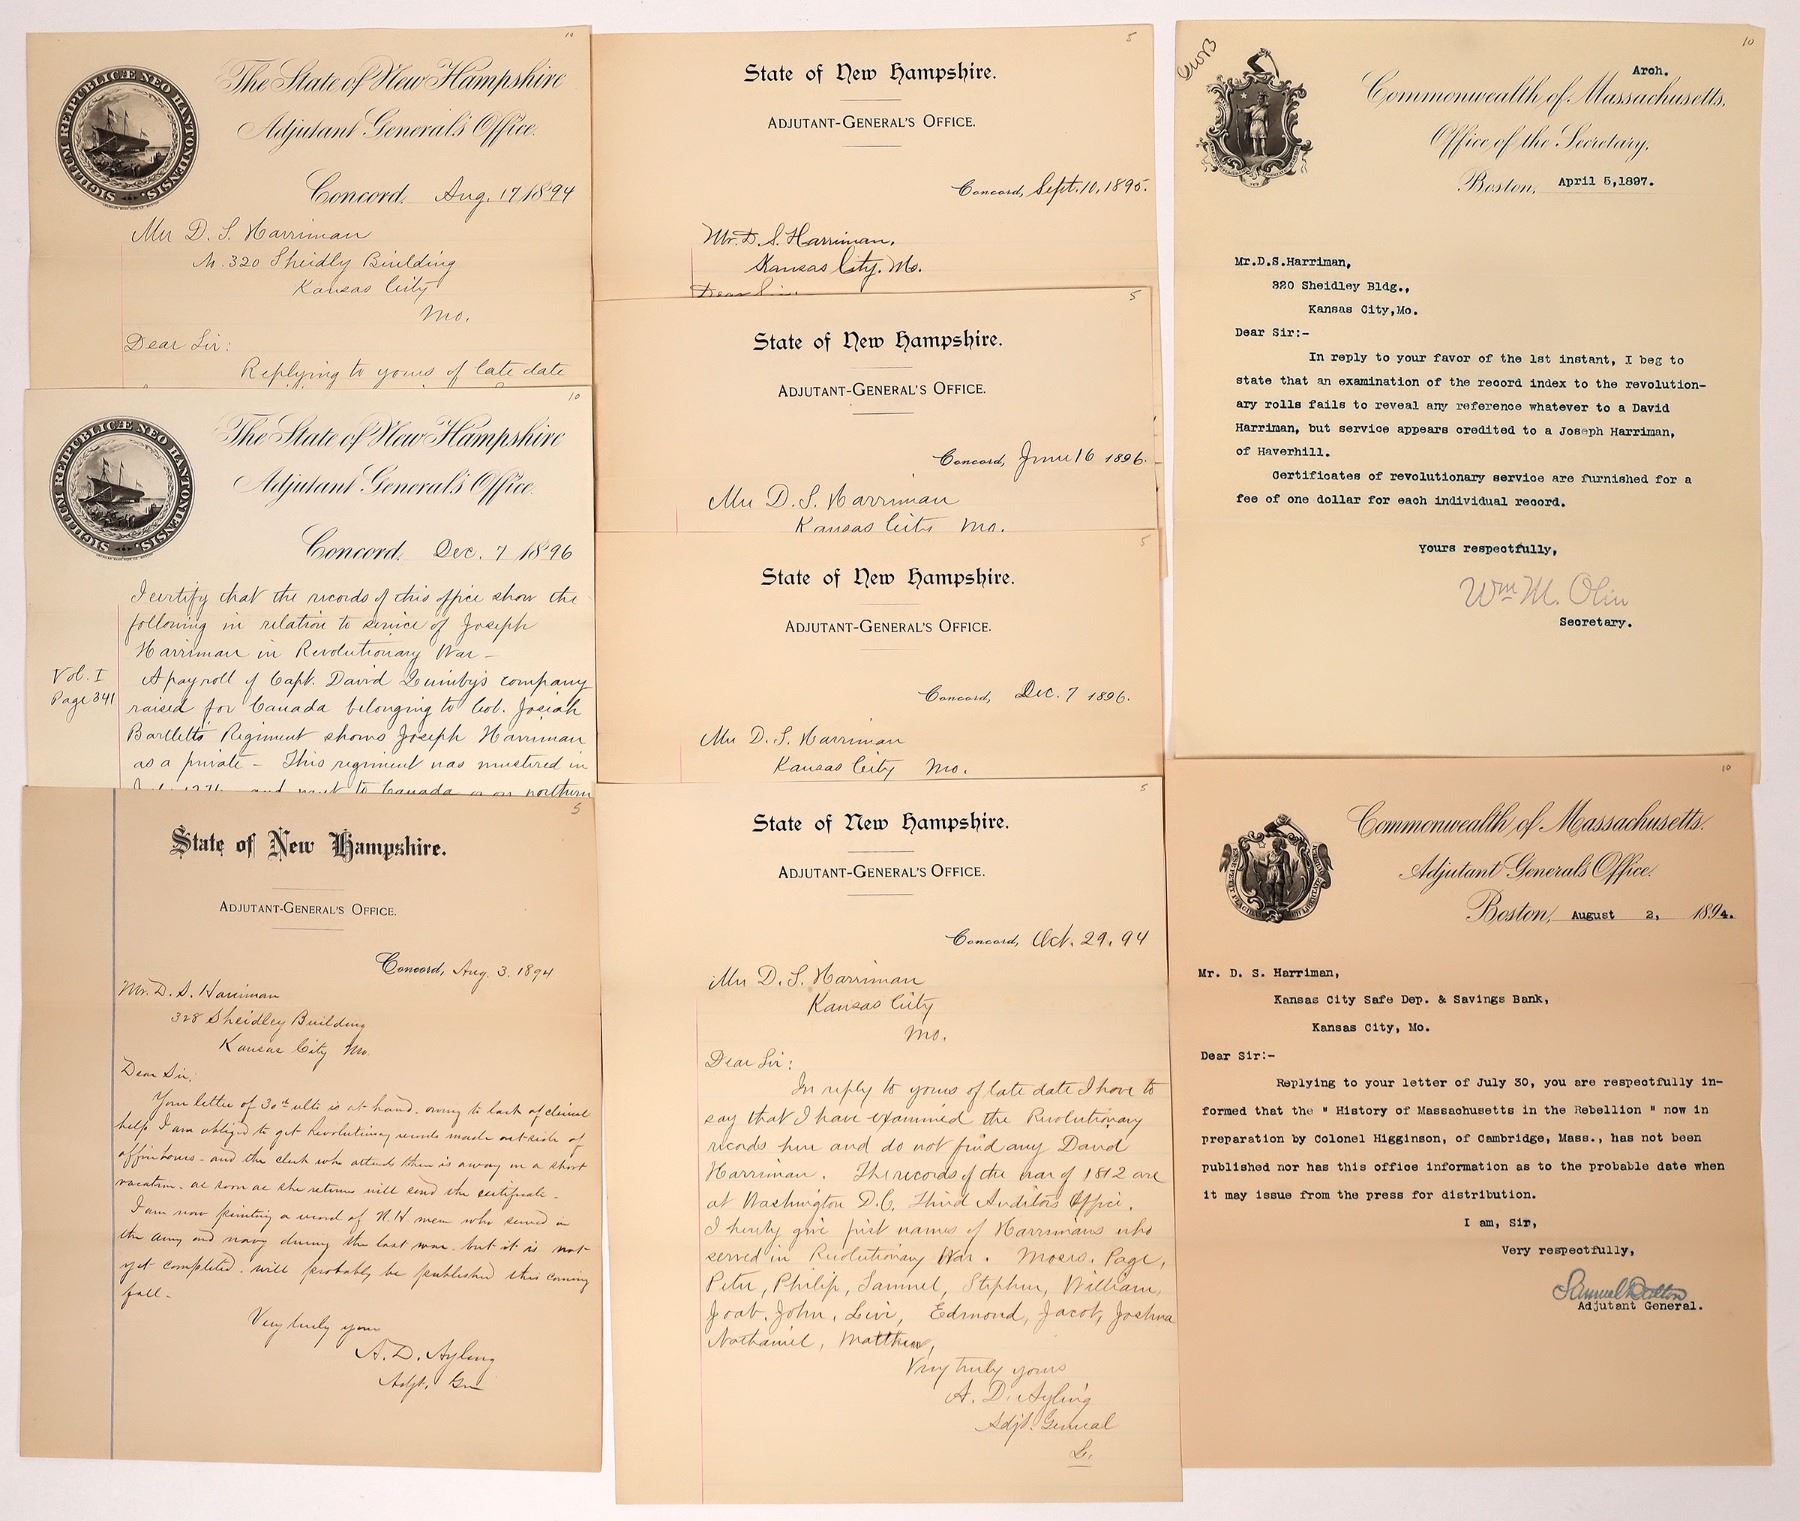 10
SIGILLUM REIPUBLICÆ NEO HANTONIENSIS.
The State of New Hampshire
Adjutant General's Office.
Concord, Aug. 17, 1894
Mr D. S. Harriman
N. 320 Sheidly Building
Kansas City
Mo.
Dear Sir:
Replying to yours of late date
10
SIGILLUM REIPUBLICÆ NEO HANTONIENSIS.
The State of New Hampshire
Adjutant General's Office.
Concord, Dec. 7 1896
I certify that the records of this office show the
following in relation to service of Joseph
Harriman in Revolutionary War –
Vol. I
Page 341
A payroll of Capt. David Quimby's company
raised for Canada belonging to Col. Josiah
Bartlett's Regiment shows Joseph Harriman
as a private – This regiment was mustered in
and went to Canada or on northern
5
State of New Hampshire.
ADJUTANT-GENERAL'S OFFICE.
Concord, Aug. 3. 1894
Mr. D. S. Harriman
328 Sheidley Building
Kansas City Mo.
Dear Sir:
Your letter of 30th ulto is at hand. owing to lack of clerical
help I am obliged to get Revolutionary records made outside of
office hours - and the clerk who attends them is away on a short
vacation. as soon as she returns will send the certificate.
I am now printing a record of N.H. men who served in
the army and navy during the last war. but it is not
yet completed. will probably be published this coming
fall.
Very truly yours
A. D. Ayling
Adjt. Gen
5
State of New Hampshire.
ADJUTANT-GENERAL'S OFFICE.
Concord, Sept. 10, 1895.
Mr. D. S. Harriman,
Kansas City. Mo.
Dear Sir
5
State of New Hampshire.
ADJUTANT-GENERAL'S OFFICE.
Concord, June 16 1896.
Mr D. S. Harriman
Kansas City Mo.
5
State of New Hampshire.
ADJUTANT-GENERAL'S OFFICE.
Concord, Dec. 7 1896.
Mr D. S. Harriman
Kansas City Mo.
5
State of New Hampshire.
ADJUTANT-GENERAL'S OFFICE.
Concord, Oct. 29. 94
Mr D. S. Harriman
Kansas City
Mo.
Dear Sir:
In reply to yours of late date I have to
say that I have examined the Revolutionary
records here and do not find any David
Harriman. The records of the war of 1812 are
at Washington D.C. Third Auditors Office.
I hereby give first names of Harrimans who
served in Revolutionary War. Moses, Page,
Peter, Philip, Samuel, Stephen, William,
Joab, John, Levi, Edmond, Jacob, Joshua
Nathaniel, Matthew,
Very truly yours
A. D. Ayling
Adjt. General
10
Arch.
Commonwealth of Massachusetts,
Office of the Secretary,
Boston, April 5,1897.
Mr.D.S.Harriman,
320 Sheidley Bldg.,
Kansas City,Mo.
Dear Sir:-
In reply to your favor of the 1st instant, I beg to
state that an examination of the record index to the revolution-
ary rolls fails to reveal any reference whatever to a David
Harriman, but service appears credited to a Joseph Harriman,
of Haverhill.
Certificates of revolutionary service are furnished for a
fee of one dollar for each individual record.
Yours respectfully,
Wm M. Olin
Secretary.
10
Commonwealth of Massachusetts.
Adjutant General's Office.
Boston, August 2, 1894.
Mr. D. S. Harriman,
Kansas City Safe Dep. & Savings Bank,
Kansas City, Mo.
Dear Sir:-
Replying to your letter of July 30, you are respectfully in-
formed that the " History of Massachusetts in the Rebellion " now in
preparation by Colonel Higginson, of Cambridge, Mass., has not been
published nor has this office information as to the probable date when
it may issue from the press for distribution.
I am, Sir,
Very respectfully,
Samuel Dalton
Adjutant General.